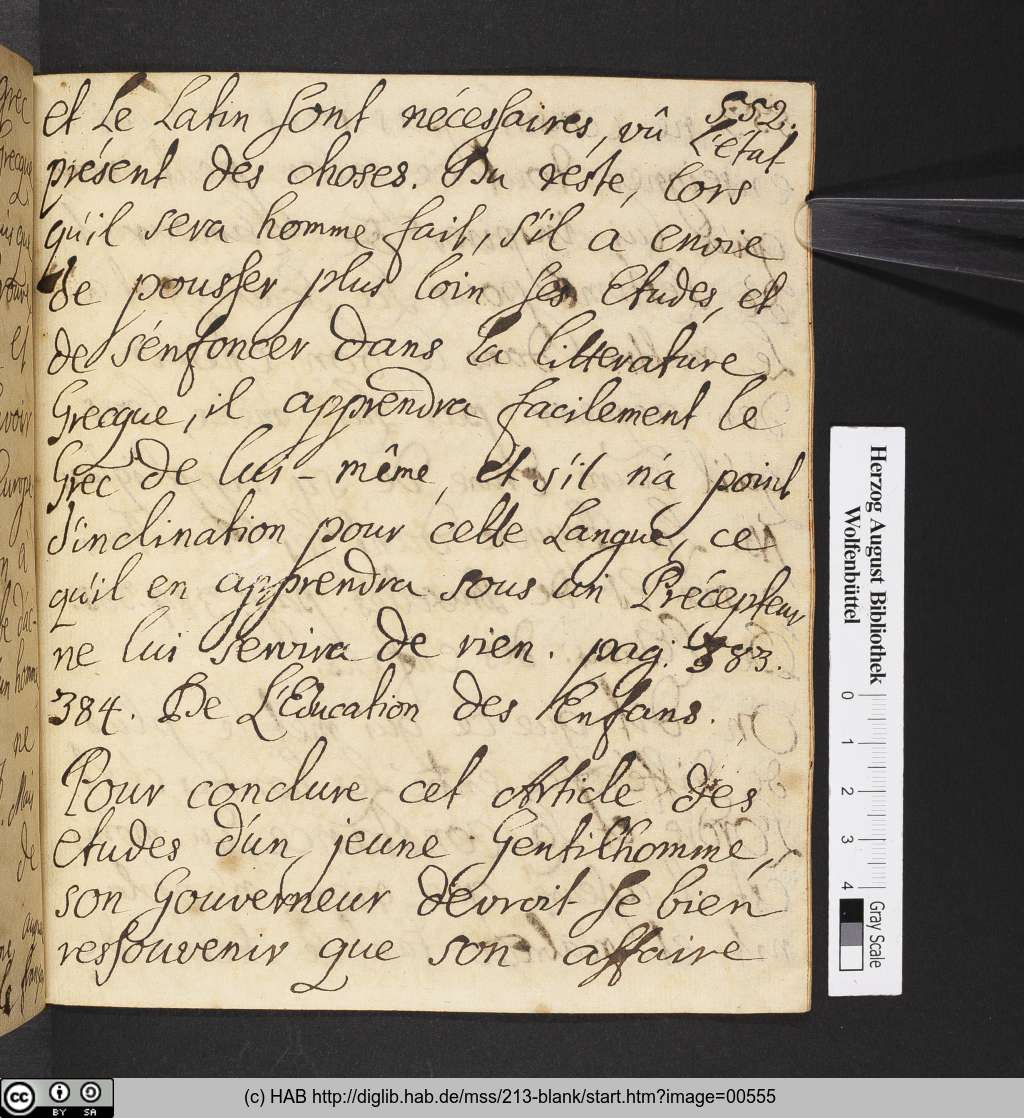 552.
et Le Latin sont nécessaires, vû L'état
présent des choses. Du reste, lors
qu'il sera homme fait, s'il a envie
de pousser plus loin ses Etudes, et
de s'énfoncer dans La litterature
Grecque, il apprendra facilement le
Grec de lui-même, et s'il n'a point
d'inclination pour cette Langue, ce
qu'il en apprendra sous un Précepteur
ne lui servira de rien. pag. 383.
384. De L'Education des Enfans.
Pour conclure cet Article des
etudes d'un jeune Gentilhomme,
son Gouverneur dévroit se bien
ressouvenir que son affaire
Herzog August Bibliothek
Wolfenbüttel
0 1 2 3 4
Gray Scale
cc BY SA
(c) HAB http://diglib.hab.de/mss/213-blank/start.htm?image=00555